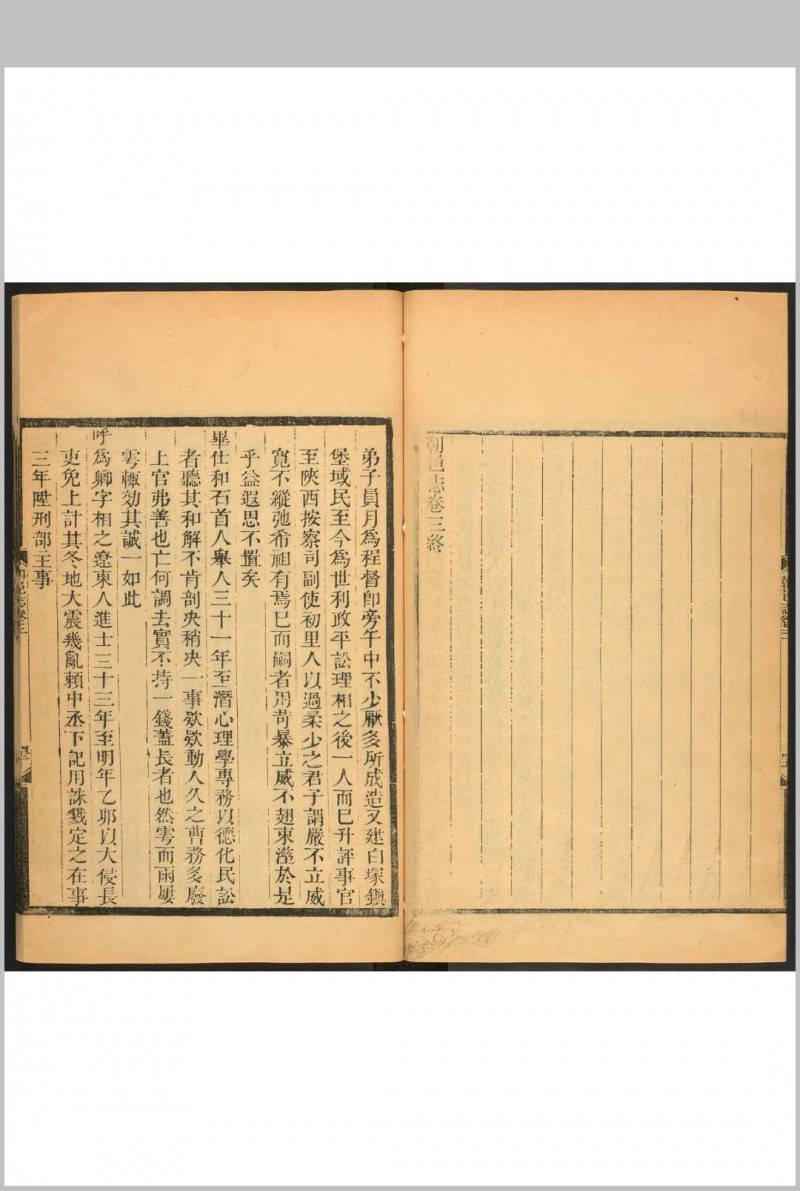 朝邑志卷三終
弟子員月為程督卽旁午中不少厭多所成造又建白塚鎮
堡域民至今為世利政平訟理相之後一人而巳升評事官
至陝西按察司副使初里人以過柔少之君子謂嚴不立威
寬不縱弛希祖有焉巳而嗣者用苛暴立威不翅束溼於是
乎益遐思不置矣
畢仕和石首人舉人三十一年至潛心理學專務以德化民訟
者聽其和解不肯剖决稍决一事欸欸動人久之曹務多廢
上官弗善也亡何調去實不持一錢蓋長者也然雩而雨屢
雩輙効其誠一如此
呼為卿字相之遼東人進士三十三年至明年乙卯以大侵長
吏免上計其冬地大震幾亂賴中丞下記用誅戮定之在事
三年陞刑部主事